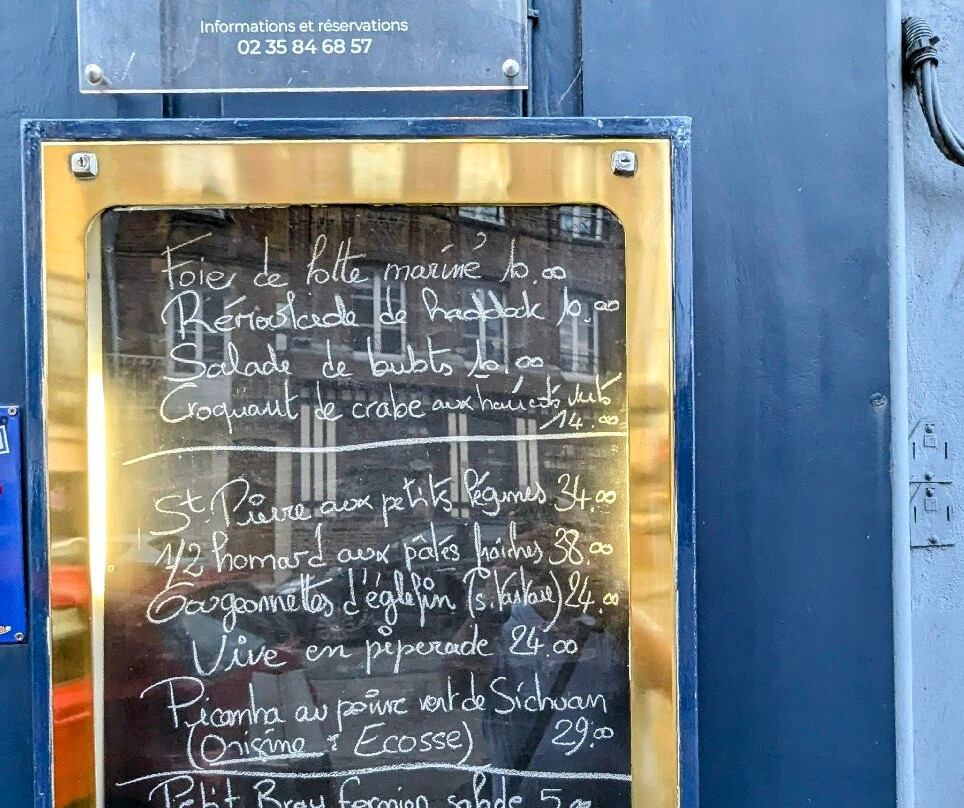 Informations et réservations
02 35 84 68 57
Foie de lotte mariné 10.00
Rémoulade de haddock 10.00
Salade de bulots 10.00
Croquant de crabe aux haricots verts
14.00
St. Pierre aux petits légumes 34.00
1/2 homard aux pâtes fraîches 38.00
d'églefin 24.00
Vive en piperade 24.00
Picanha au poivre vert de Sichuan
(Origine : Ecosse) 29.00
Petit Bray fermier salade 5.00